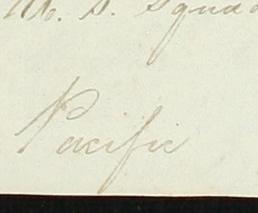 U. S. Squad
Pacific